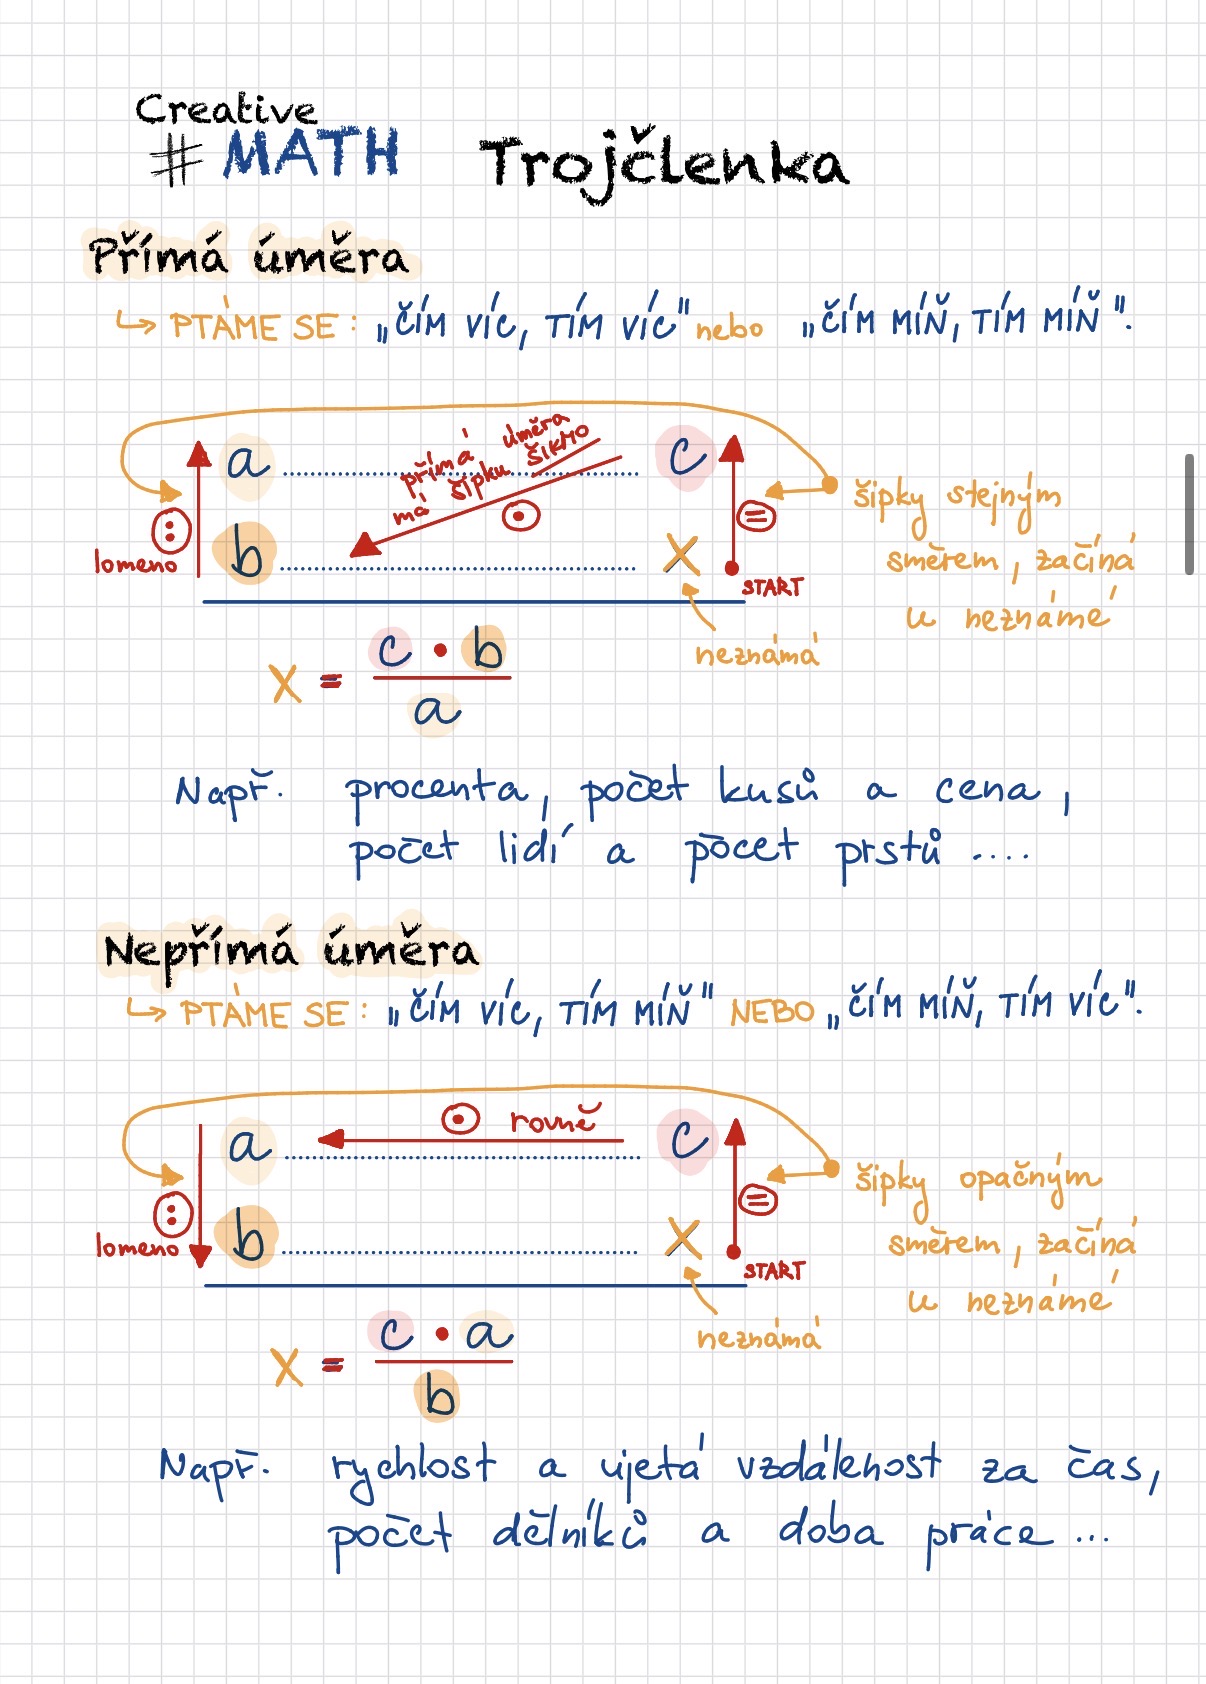 Creative
#MATH Trojčlenka
Přímá úměra
↳ PTÁME SE: „ČÍM VÍC, TÍM VÍC" nebo „ČÍM MÍŇ, TÍM MÍŇ".
přímá úměra
má šipku ŠIKMO
a c
:
•
=
šipky stejným
lomeno
b x
START
směrem, začíná
u neznámé
neznámá
x = c • b
a
Např. procenta, počet kusů a cena,
počet lidí a počet prstů ....
Nepřímá úměra
↳ PTÁME SE: „ČÍM VÍC, TÍM MÍŇ" NEBO „ČÍM MÍŇ, TÍM VÍC".
• rovně
a c
:
=
šipky opačným
lomeno
b x
START
směrem, začíná
u neznámé
neznámá
x = c • a
b
Např. rychlost a ujetá vzdálenost za čas,
počet dělníků a doba práce ...